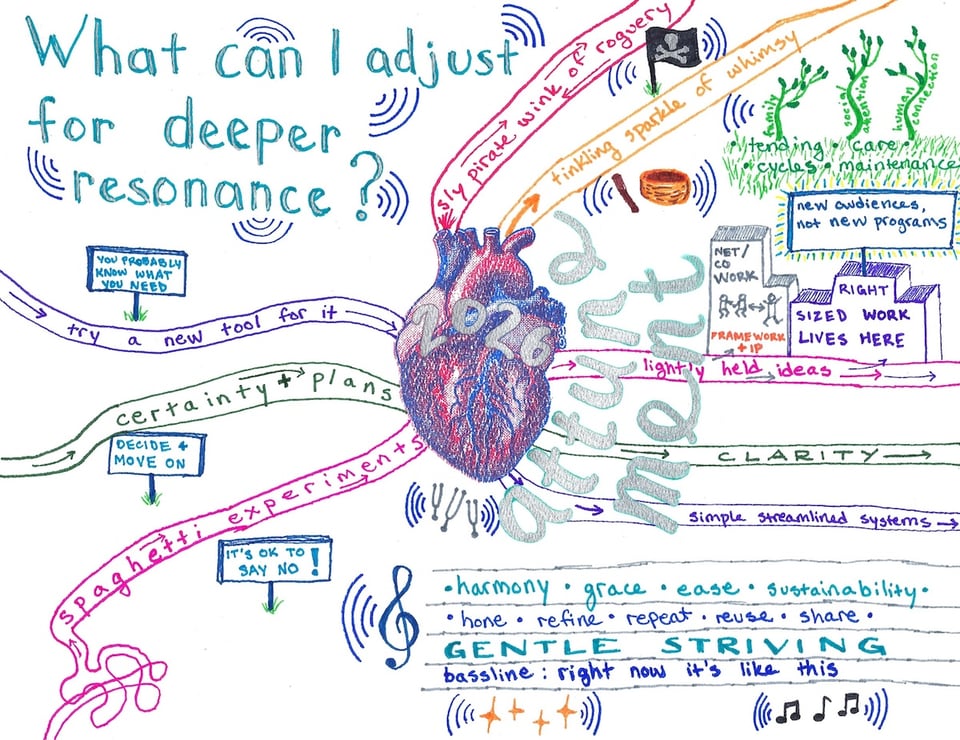 What can I adjust
for deeper
resonance?
sly pirate wink of roguery
tinkling sparkle of whimsy
family
social attention
human connection
• tending • care •
• cycles • maintenance
new audiences,
not new programs
NET/
CO
WORK
FRAMEWORK
+ IP
RIGHT
SIZED WORK
LIVES HERE
YOU PROBABLY
KNOW WHAT
YOU NEED
try a new tool for it
2026
attunement
lightly held ideas
certainty + plans
DECIDE +
MOVE ON
CLARITY
spaghetti experiments
simple streamlined systems
IT'S OK TO
SAY NO!
• harmony • grace • ease • sustainability •
• hone • refine • repeat • reuse • share •
GENTLE STRIVING
bassline: right now it's like this